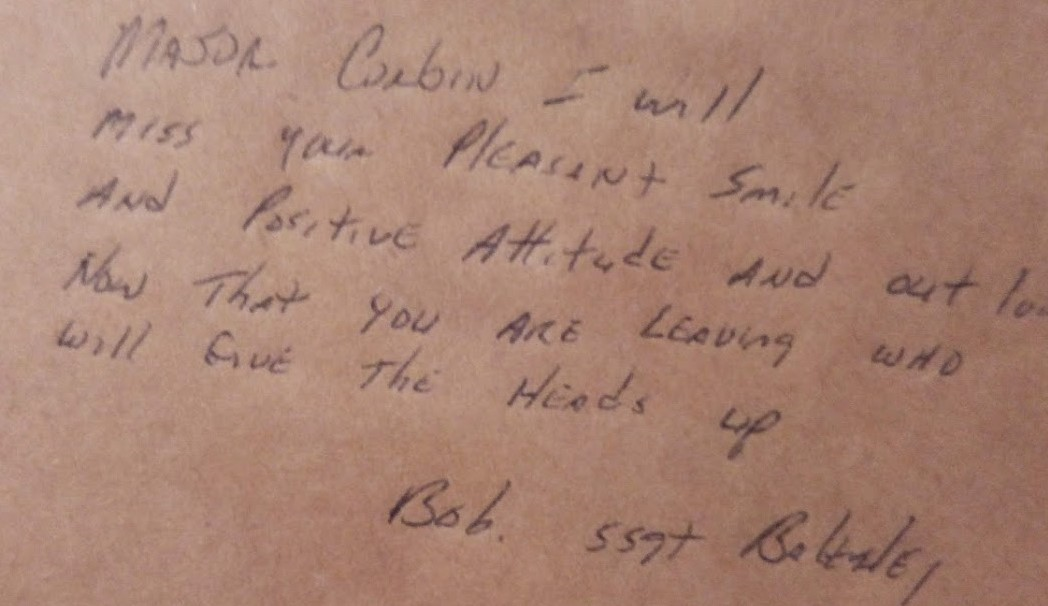 MAJOR Corbin I will
Miss your PLEASANT SmilE
AND PositivE AttitudE AND out
Now That YOU ARE LEAVing WHO
will GivE ThE HEADs up
Bob. ssgt